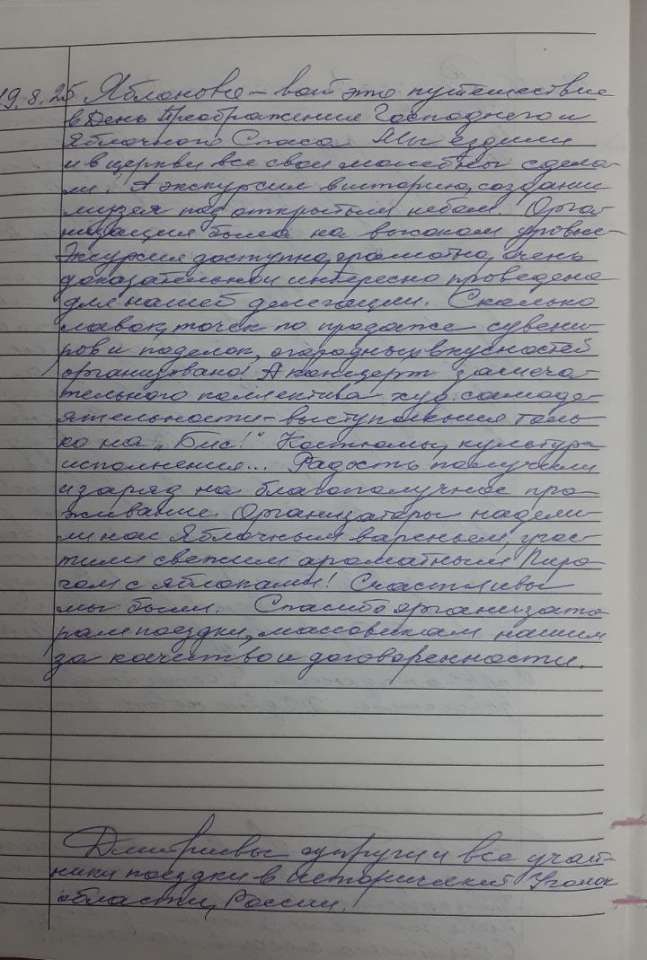 19.8.25 Яблоново – вот это путешествие
в День Преображения Господнего и
Яблочного Спаса. Мы ездили
и в церкви все свои молебны сдела-
ли. А экскурсия в историю, создание
музея под открытым небом. Орга-
низация была на высоком уровне-
Экскурсия доступно, грамотно, очень
доказательно и интересно проведена
для нашей делегации. Сколько
лавок, точек по продаже сувени-
ров и поделок, огородных вкусностей
организовано! А концерт замеча-
тельного коллектива худ. самоде-
ятельности – выступления толь-
ко на „Бис!" Костюмы, культура
исполнения... Радость получили
и заряд на благополучное про-
живание. Организаторы надели-
ли нас Яблочным вареньем, угос-
тили свежим ароматным Пиро-
гом с яблоками! Счастливы
мы были. Спасибо организато-
рам поездки, массовикам нашим
за качество и договоренности.
Дмитриевы супруги и все участ-
ники поездки в исторический Уголок
области, России.